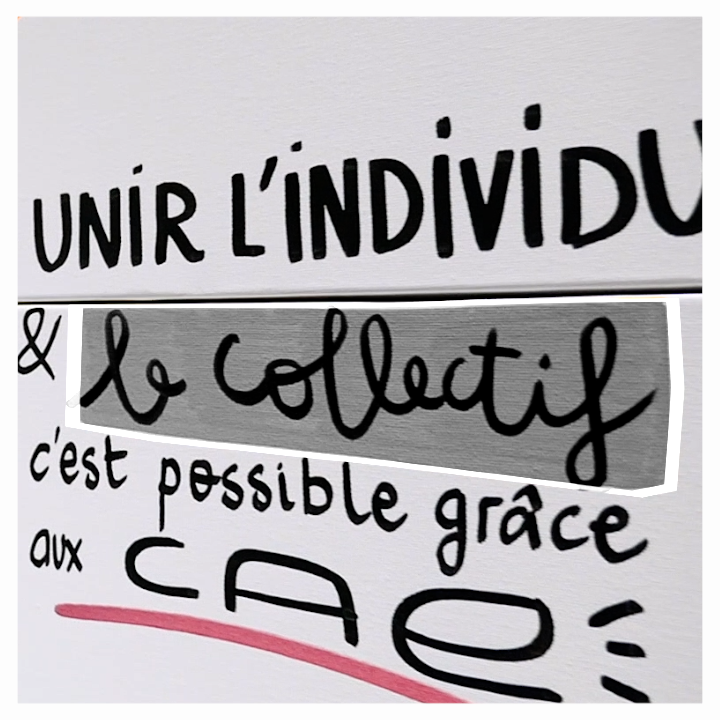 UNIR L'INDIVIDU
& le collectif
c'est possible grâce
aux CAE